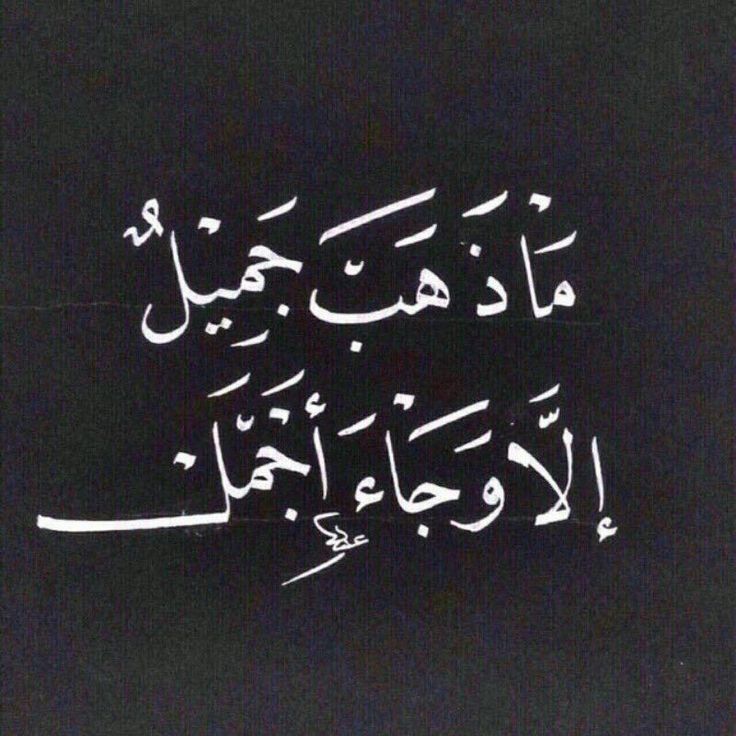 مَاْ ذَهَبَّ جَمِيْلٌ
إلَّا وَجَاْءَ أَجْمَّلَْ